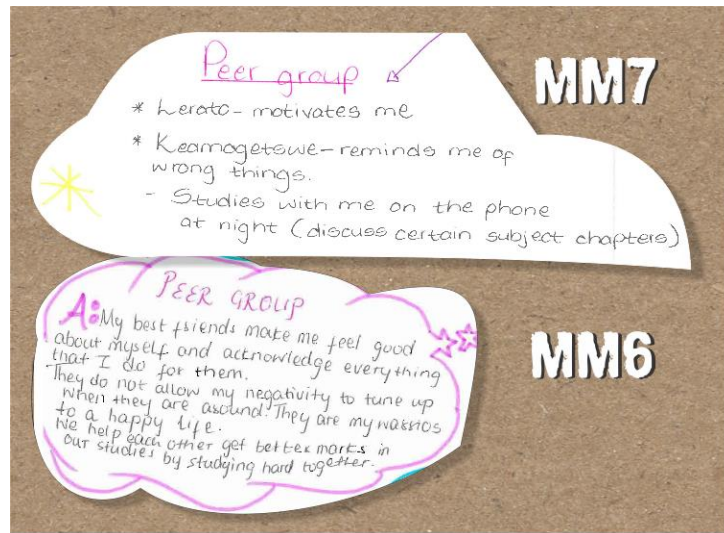 Peer group
MM7
* Lerato - motivates me
* Keamogetswe - reminds me of
wrong things.
- Studies with me on the phone
at night (discuss certain subject chapters)
PEER GROUP
A: My best friends make me feel good
about myself and acknowledge everything
that I do for them.
They do not allow my negativity to tune up
when they are around. They are my warrios
to a happy life.
We help each other get better marks in
our studies by studying hard together.
MM6